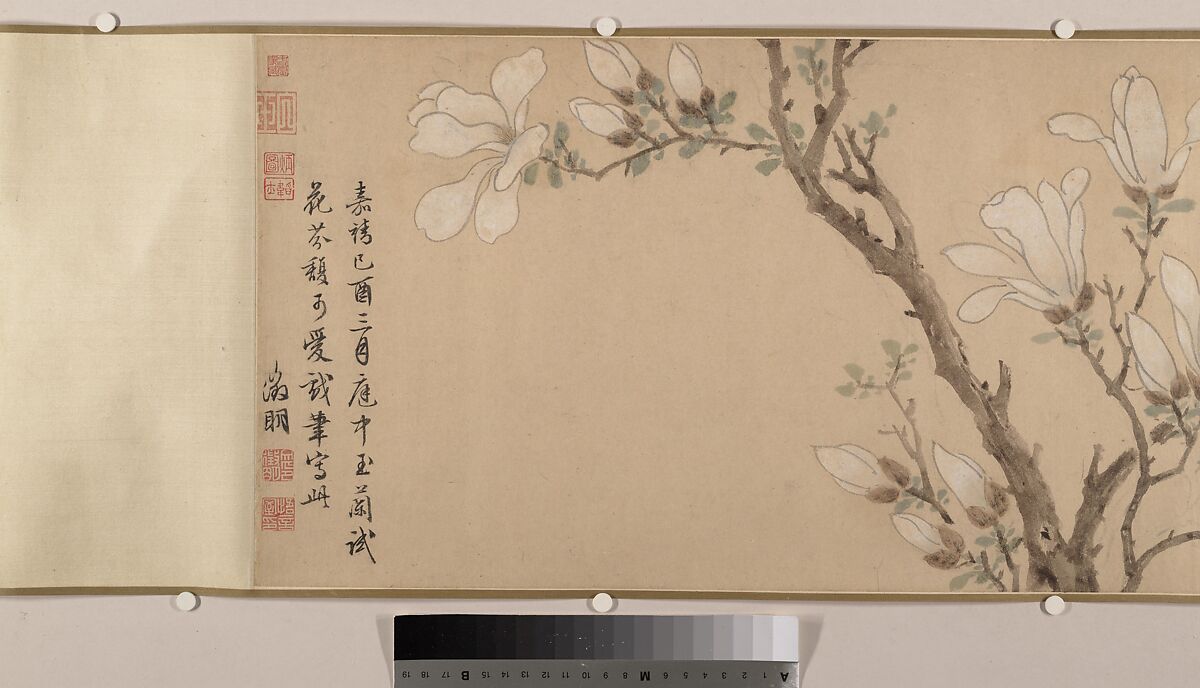 嘉靖己酉三月庭中玉蘭試
花芬馥可愛戲筆寫此
徵明
A 1 2 3 4 5 6 M 8 9 10 11 12 13 14 15 B 17 18 19